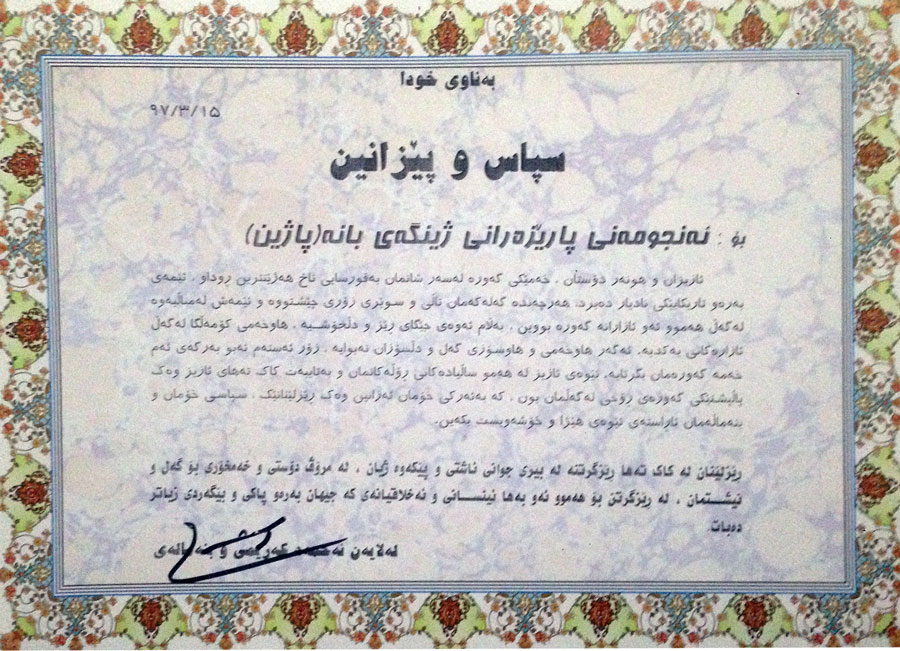 بەناوی خودا
٩٧/٣/١٥
سپاس و پێزانین
بۆ : ئەنجومەنی پارێزەرانی ژینگەی بانە(پاژین)
ئازیزان و هونەر دۆستان ، خەمێکی گەورە لەسەر شانمان بەقورسایی تاخ هەژێنترین ڕوداو ، ئێمەی
بەرەو تاریکانێکی نادیار دەبرد، هەرچەندە گەلەکەمان تاڵی و سوێری زۆری چێشتووە و ئێمەش لەمناڵیەوە
لەگەڵ هەموو ئەو ئازارانە گەورە بووین ، بەڵام ئەوەی جێگای ڕێز و دڵخۆشیە ، هاوخەمی کۆمەڵگا لەگەڵ
ئازارەکانی یەکدیە. ئەگەر هاوخەمی و هاوسۆزی گەل و دڵسۆزان نەبوایە ، زۆر ئەستەم ئەبو بەرگەی ئەم
خەمە گەورەمان بگرتایە. ئێوەی ئازیز لە هەمو ساڵیادەکانی ڕۆڵەکانمان و بەتایبەت کاک تەهای ئازیز وەک
پاڵپشتێکی گەورەی ڕۆحی لەگەڵمان بون ، کە بەئەرکی خۆمان ئەزانین وەک ڕێزلێنانێک ، سپاسی خۆمان و
بنەماڵەمان ئاراستەی ئێوەی هێژا و خۆشەویست بکەین.
ڕێزلێنان لە کاک تەها ڕێزگرتنە لە بیری جوانی ئاشتی و پێکەوە ژیان ، لە مرۆڤ دۆستی و خەمخۆری بۆ گەل و
نیشتمان ، لە ڕێزگرتن بۆ هەموو ئەو بەها ئینسانی و ئەخلاقیانەی کە جیهان بەرەو پاکی و بێگەردی زیاتر
دەبات
لەلایەن ئەحمەد کەریمی و بنەماڵەی